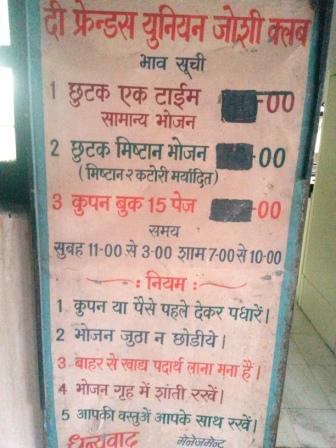 दी फ्रेन्डस युनियन जोशी क्लब
भाव सूची
1 छुटक एक टाईम -00
सामान्य भोजन
2 छुटक मिष्टान भोजन -00
(मिष्टान २ कटोरी मर्यादित)
3 कुपन बुक 15 पेज -00
समय
सुबह 11-00 से 3-00 शाम 7-00 से 10-00
नियम :
1 कुपन या पैसे पहले देकर पधारें।
2 भोजन जुठा न छोडीये।
3 बाहर से खाद्य पदार्थ लाना मना है।
4 भोजन गृह में शांती रखें।
5 आपकी वस्तुऐं आपके साथ रखें।
धन्यवाद मेनेजमेन्ट